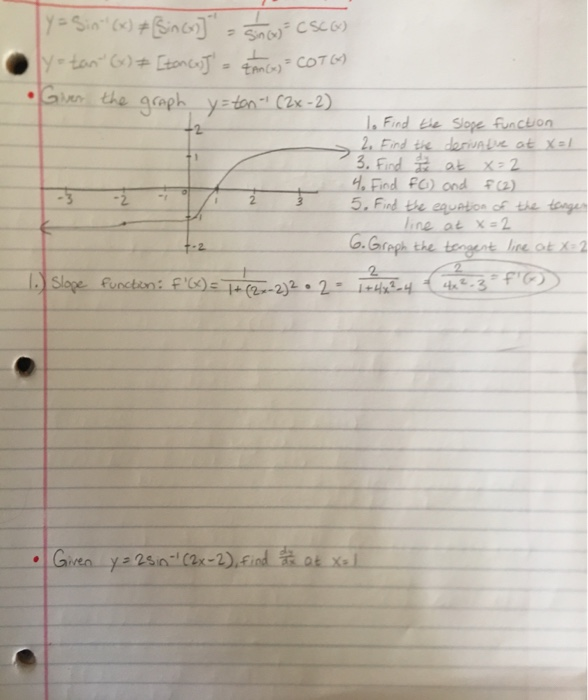 y = Sin⁻¹(x) ≠ [Sin(x)]⁻¹ = 1/Sin(x) = CSC(x)
y = tan⁻¹(x) ≠ [tan(x)]⁻¹ = 1/tan(x) = COT(x)
• Given the graph y = tan⁻¹(2x-2)
1. Find the Slope function
2. Find the derivative at x=1
3. Find dy/dx at x=2
4. Find f(1) and f(2)
5. Find the equation of the tangen
line at x=2
6. Graph the tangent line at x=2
2
1
-3 -2 -1 0 1 2 3
-1
-2
1.) Slope function: f'(x) = 1/1+(2x-2)² • 2 = 2/1+4x²-4 = 2/4x²-3 = f'(x)
• Given y = 2sin⁻¹(2x-2), find dy/dx at x=1